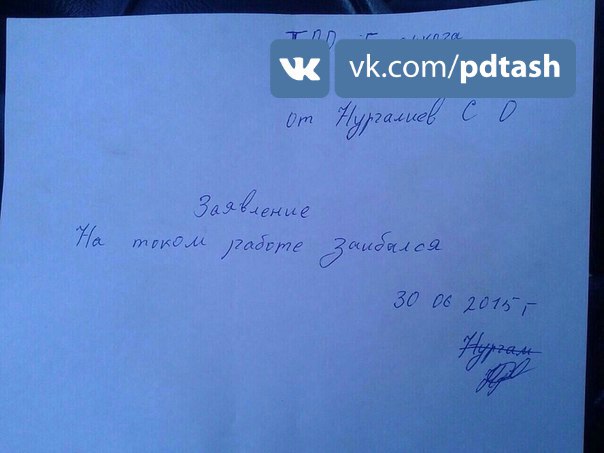 vk.com/pdtash
от Нургалиев С О
Заявление
На таком работе заибался
30 06 2015 г
Нургам